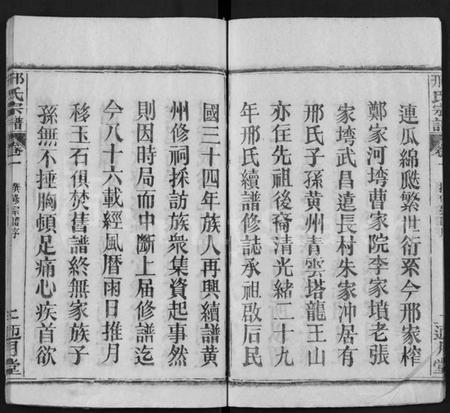 連瓜綿飈繁世衍系今邢家榨
鄭家河塆曹家院李家墳老張
家塆武昌道長村朱家冲居有
邢氏子孫黃州青雲塔龍王山
亦在先祖後裔清光緒二十九
年邢氏續譜修誌承祖啟后民
國三十四年族人再興續譜黃
州修祠採訪族衆集資起事然
則因時局而中斷上届修譜迄
今八十六載經風曆雨日推月
移玉石俱焚舊譜終無家族子
孫無不捶胸頓足痛心疾首欲
邢氏宗譜
卷一